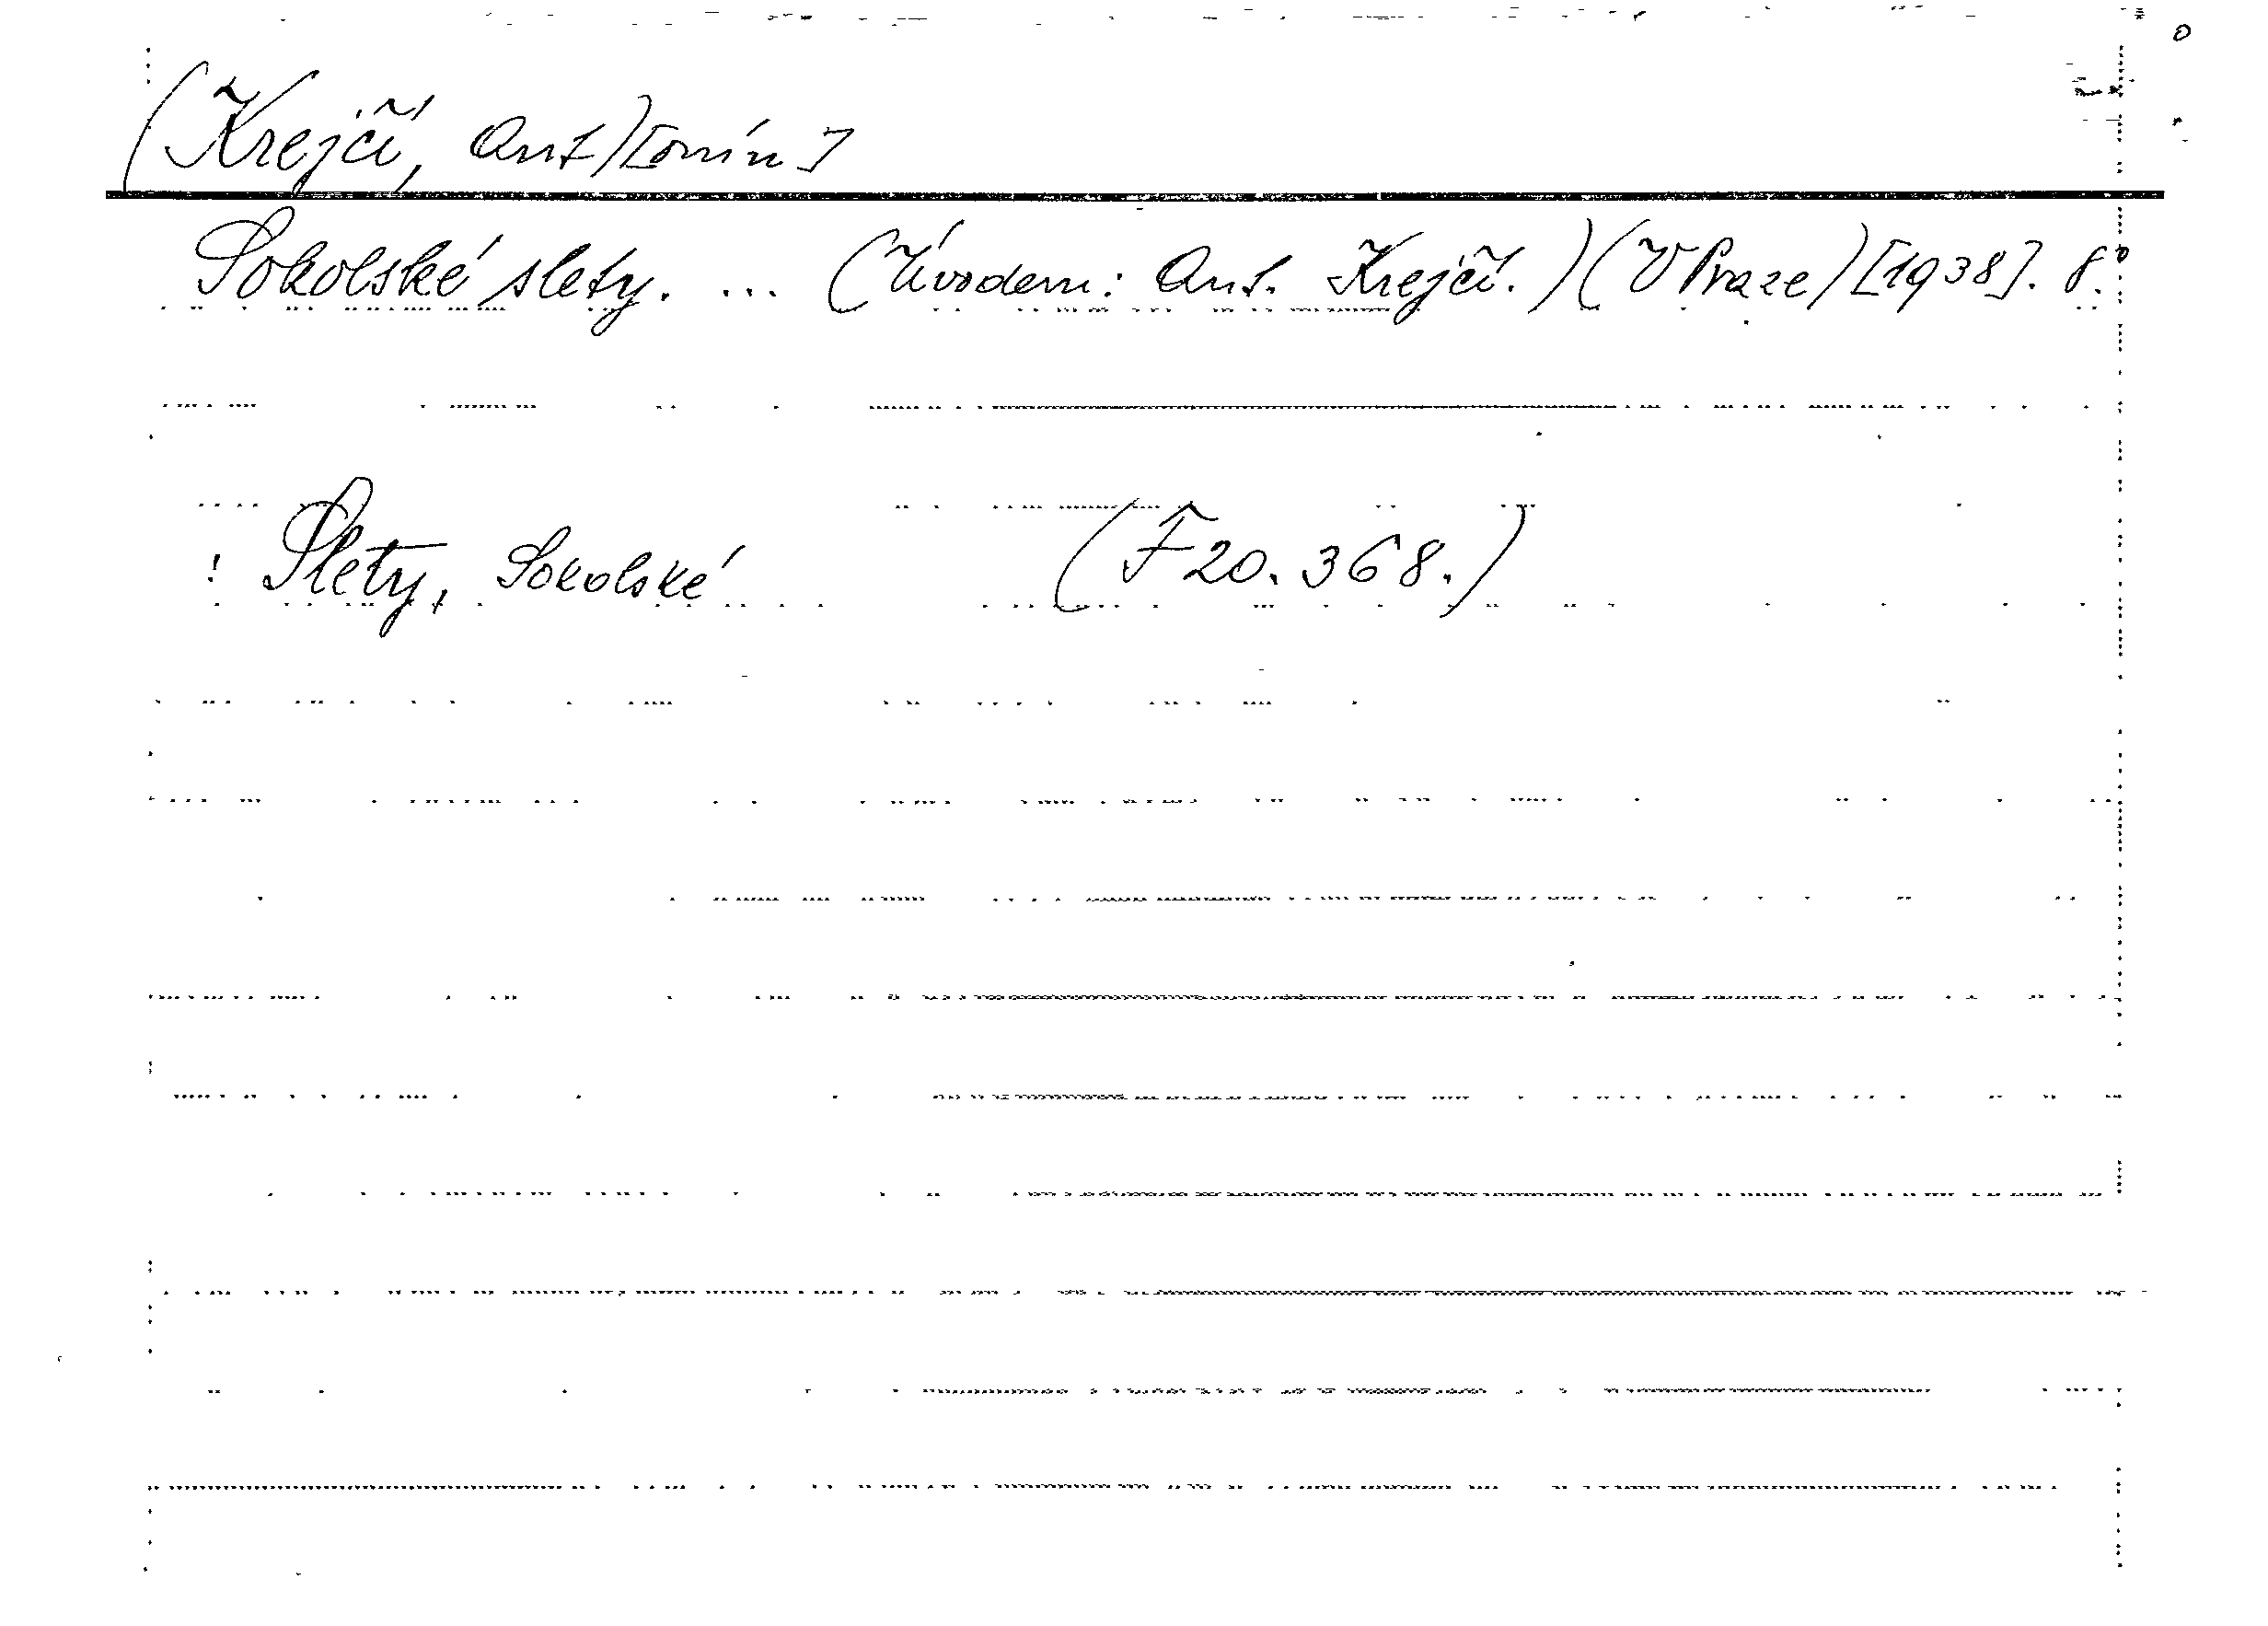 (Krejčí, Ant)[onín]
Sokolské slety. ... (Úvodem: Ant. Krejčí.)(V Praze)[1938]. 8.°
! Slety, Sokolské (F 20.368.)